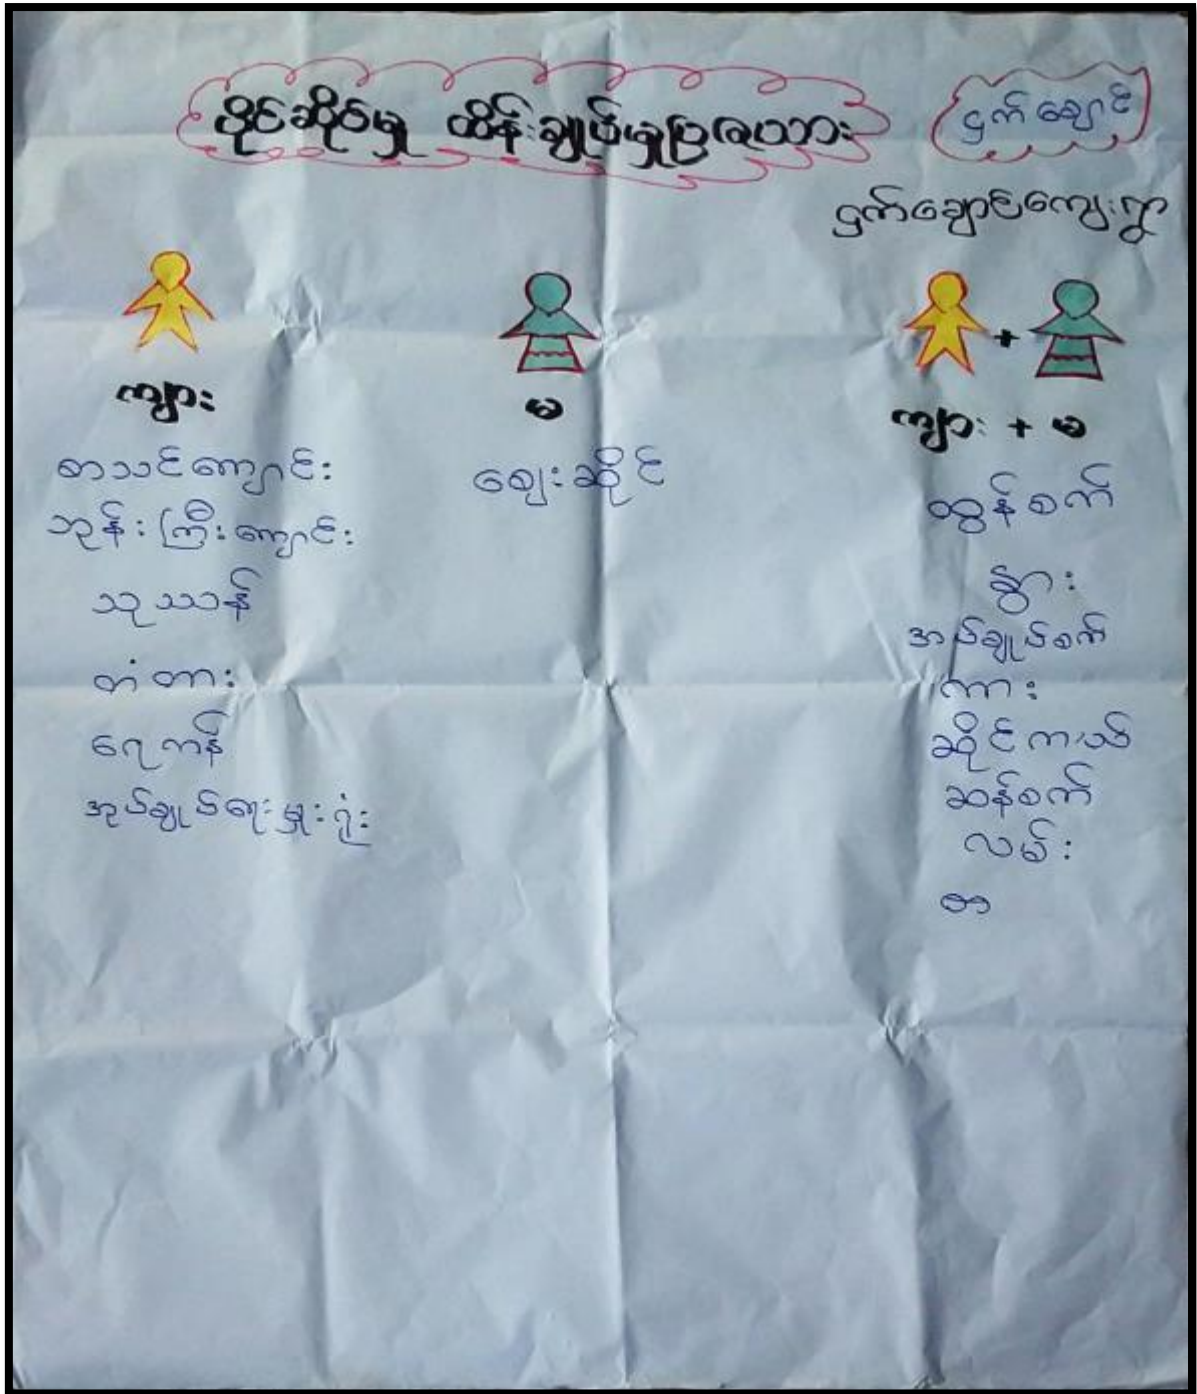 ပိုင်ဆိုင်မှု ထိန်းချုပ်မှုပြဇယား
ငှက်ချောင်
ငှက်ချောင်ကျေးရွာ
ကျား
မ
ကျား + မ
စာသင်ကျောင်း
ဘုန်းကြီးကျောင်း
သုဿာန်
တံတား
ရေကန်
အုပ်ချုပ်ရေးမှူးရုံး
ဈေးဆိုင်
ထွန်စက်
နွား
အပ်ချုပ်စက်
ကား
ဆိုင်ကယ်
ဆန်စက်
လမ်း